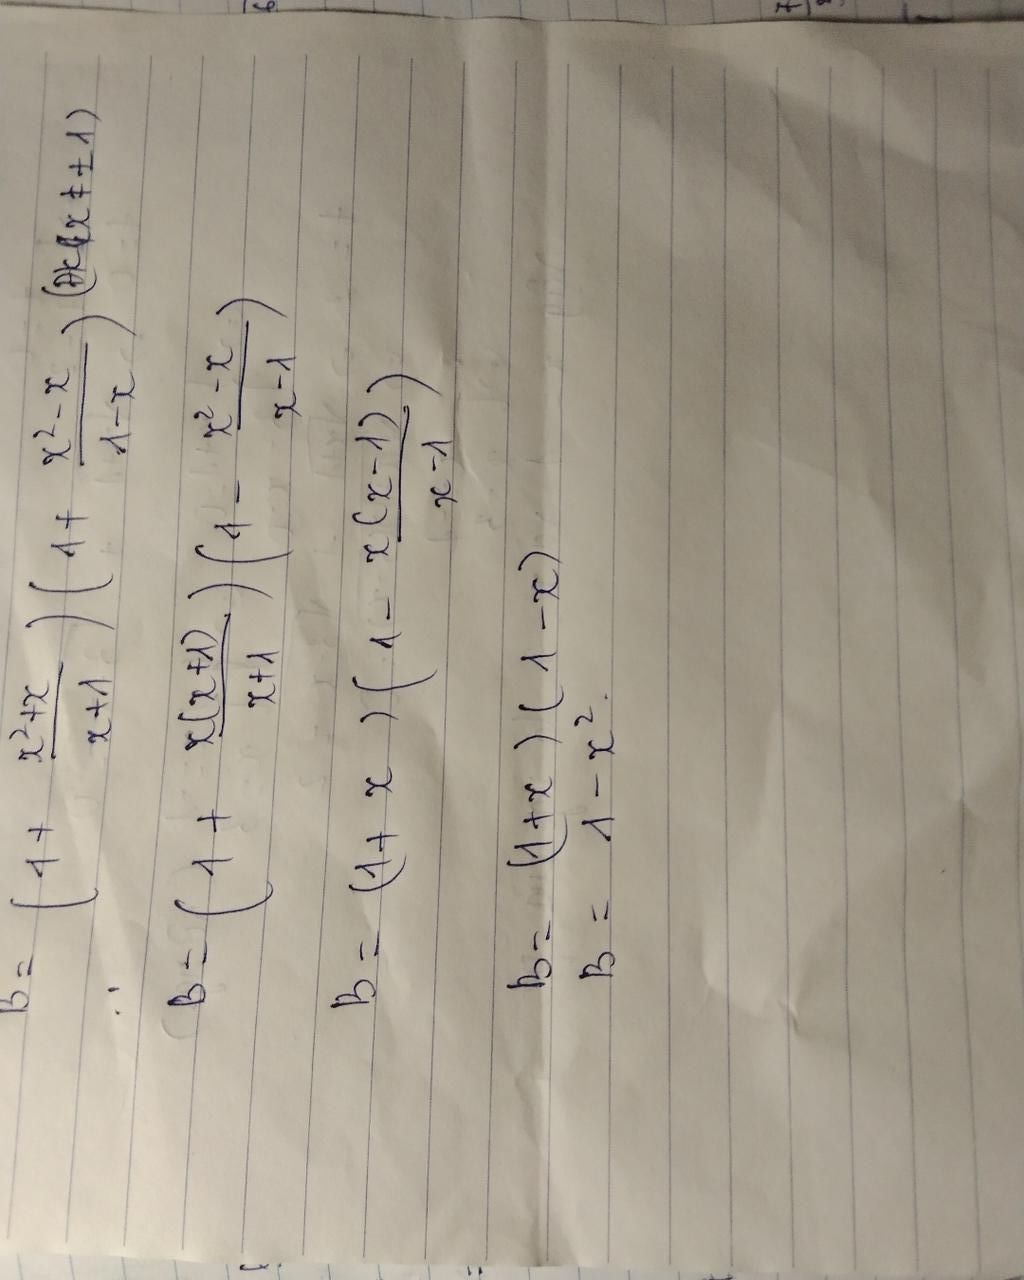 B = (1 + \frac{x²+x}{x+1})(1 + \frac{x²-x}{1-x}) (x ≠ ±1)
B = (1 + \frac{x(x+1)}{x+1})(1 - \frac{x²-x}{x-1})
B = (1 + x)(1 - \frac{x(x-1)}{x-1})
B = (1+x)(1-x)
B = 1 - x².